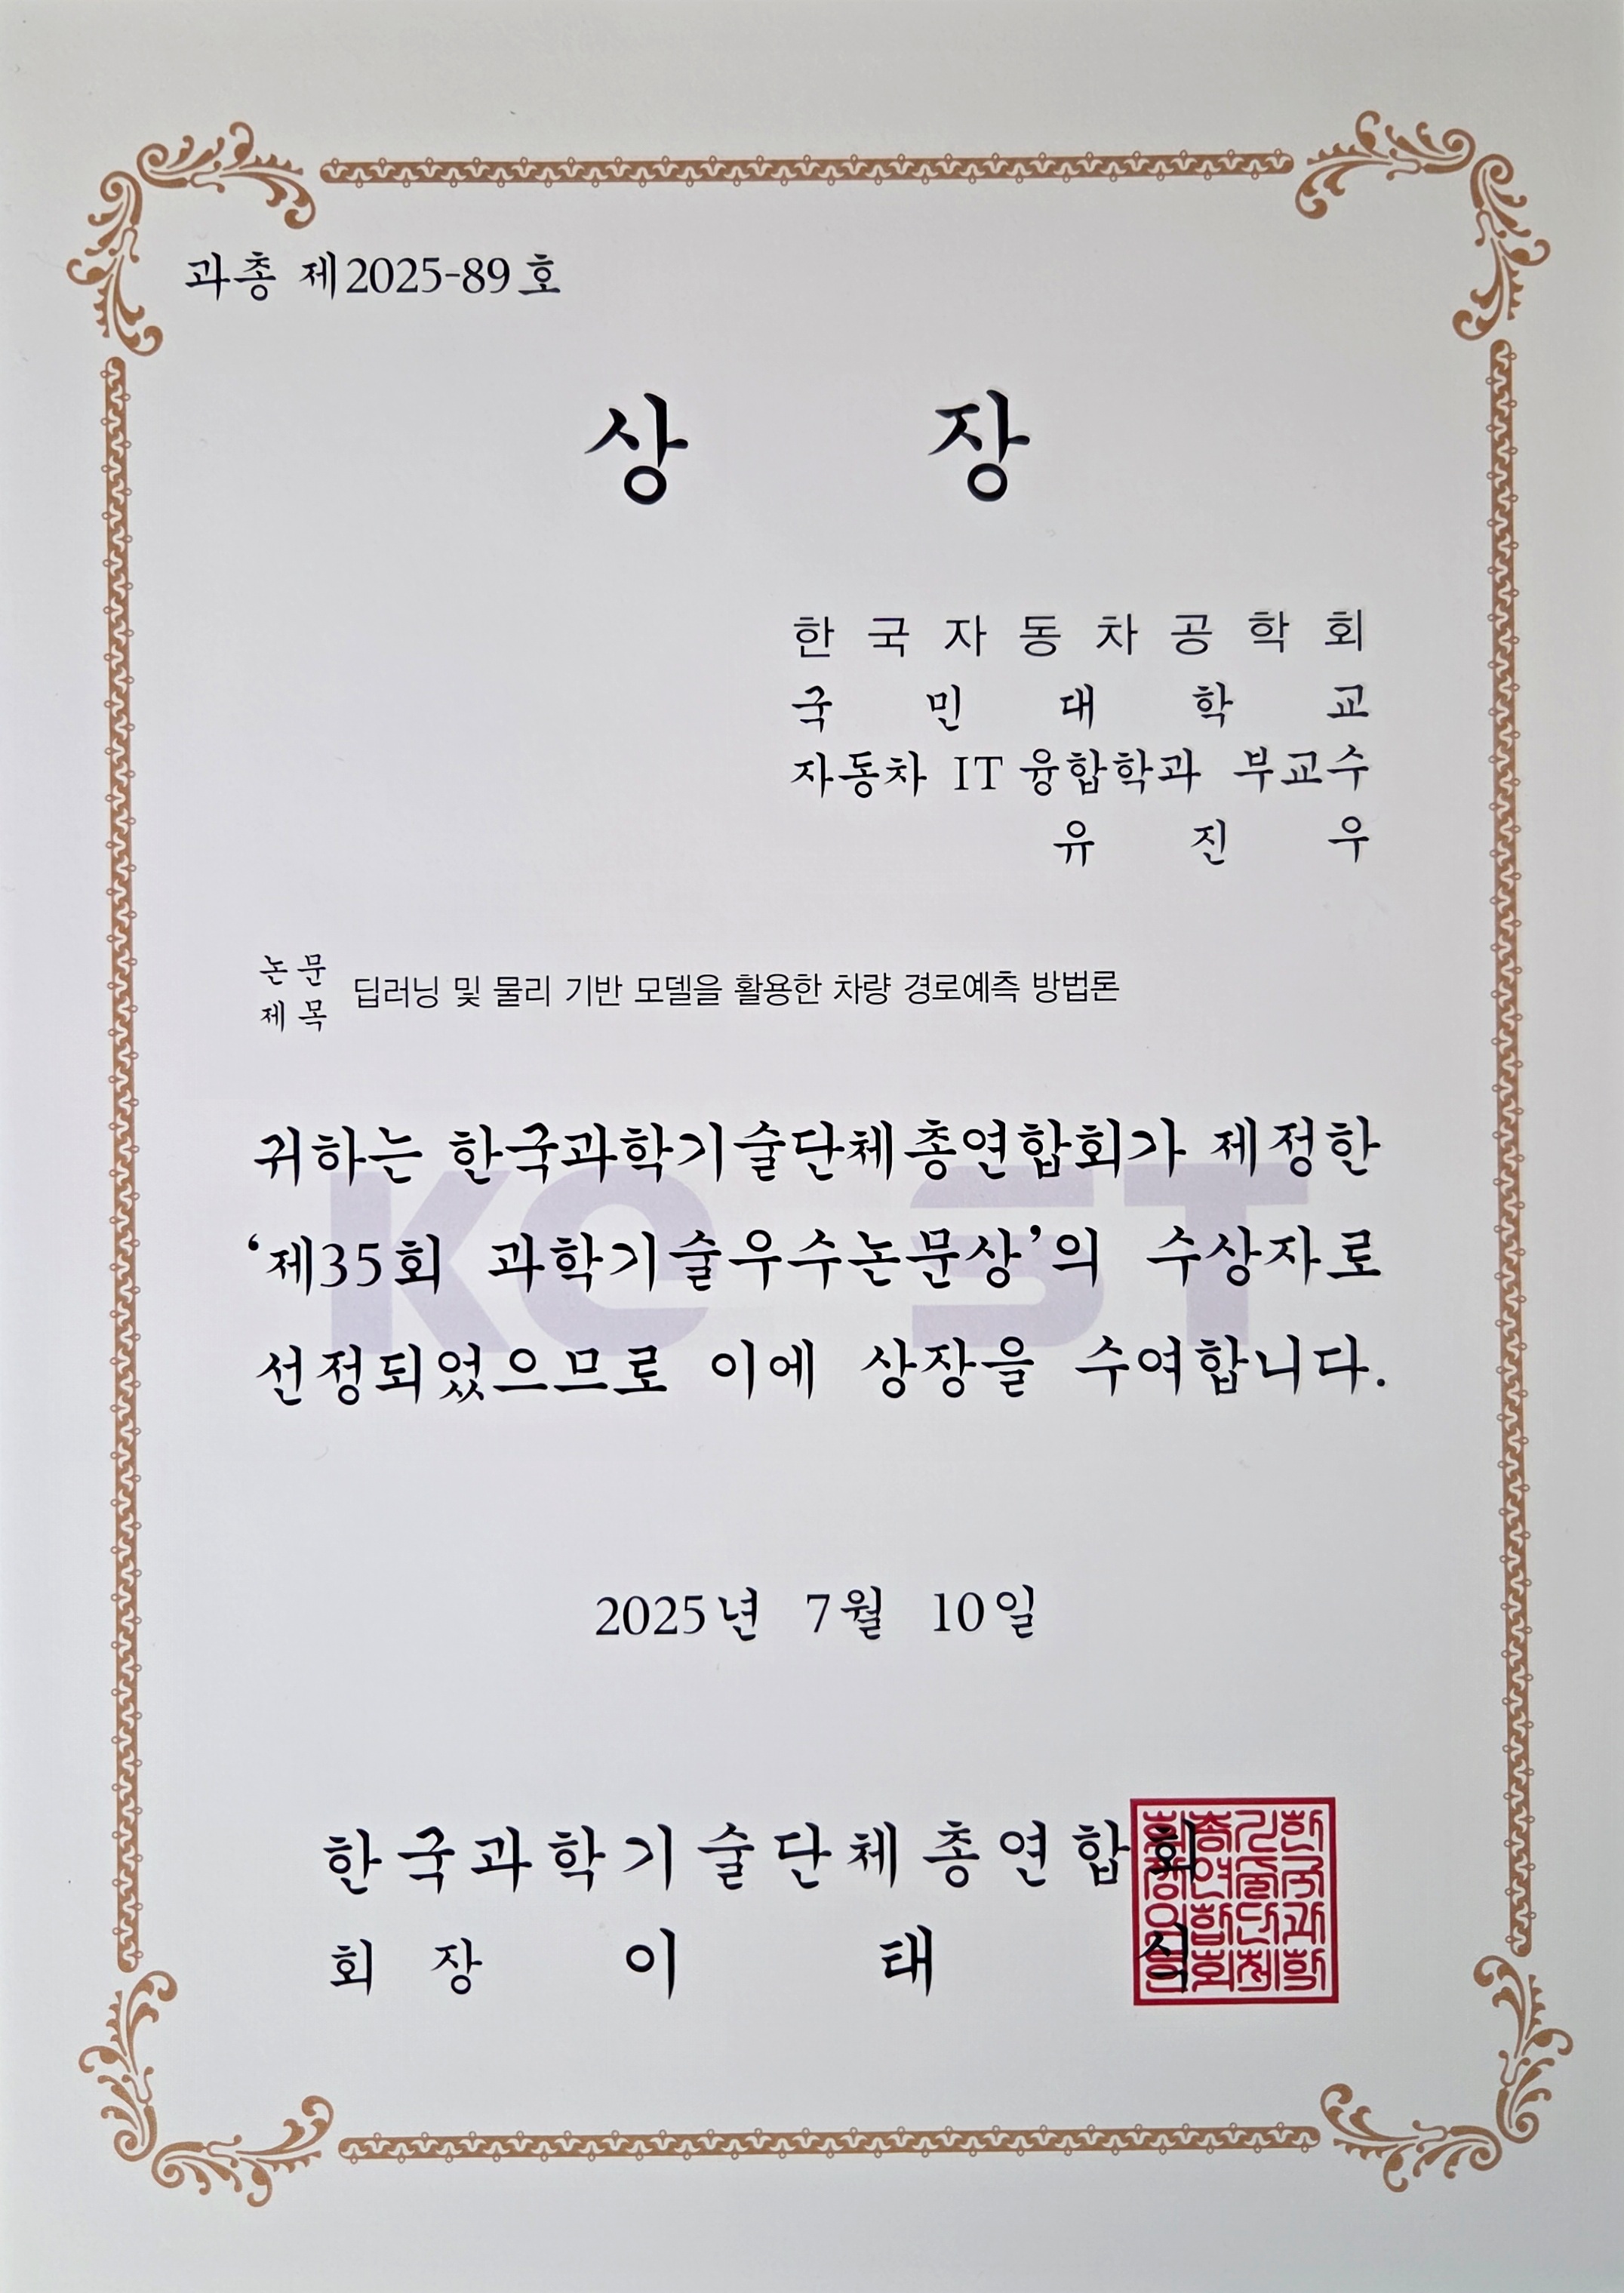 과총 제2025-89호
상 장
한국자동차공학회
국민대학교
자동차 IT 융합학과 부교수
유진우
논문제목 딥러닝 및 물리 기반 모델을 활용한 차량 경로예측 방법론
귀하는 한국과학기술단체총연합회가 제정한
‘제35회 과학기술우수논문상’의 수상자로
선정되었으므로 이에 상장을 수여합니다.
2025년 7월 10일
한국과학기술단체총연합회
회장 이태식